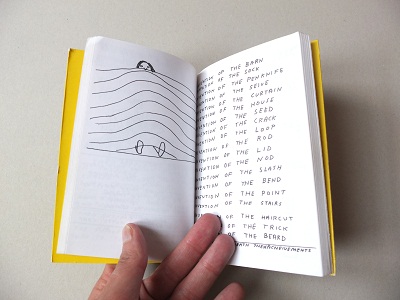 NTION OF THE BARN
ENTION OF THE SOCK
ENTION OF THE PENKNIFE
ENTION OF THE SEIVE
ENTION OF THE CURTAIN
ENTION OF THE HOUSE
ENTION OF THE SEED
ENTION OF THE CRACK
ENTION OF THE LOOP
ENTION OF THE ROD
VENTION OF THE LID
VENTION OF THE NOD
VENTION OF THE SLASH
VENTION OF THE BEND
VENTION OF THE POINT
VENTION OF THE STAIRS
ON OF THE HAIRCUT
OF THE TRICK
OF THE BEARD